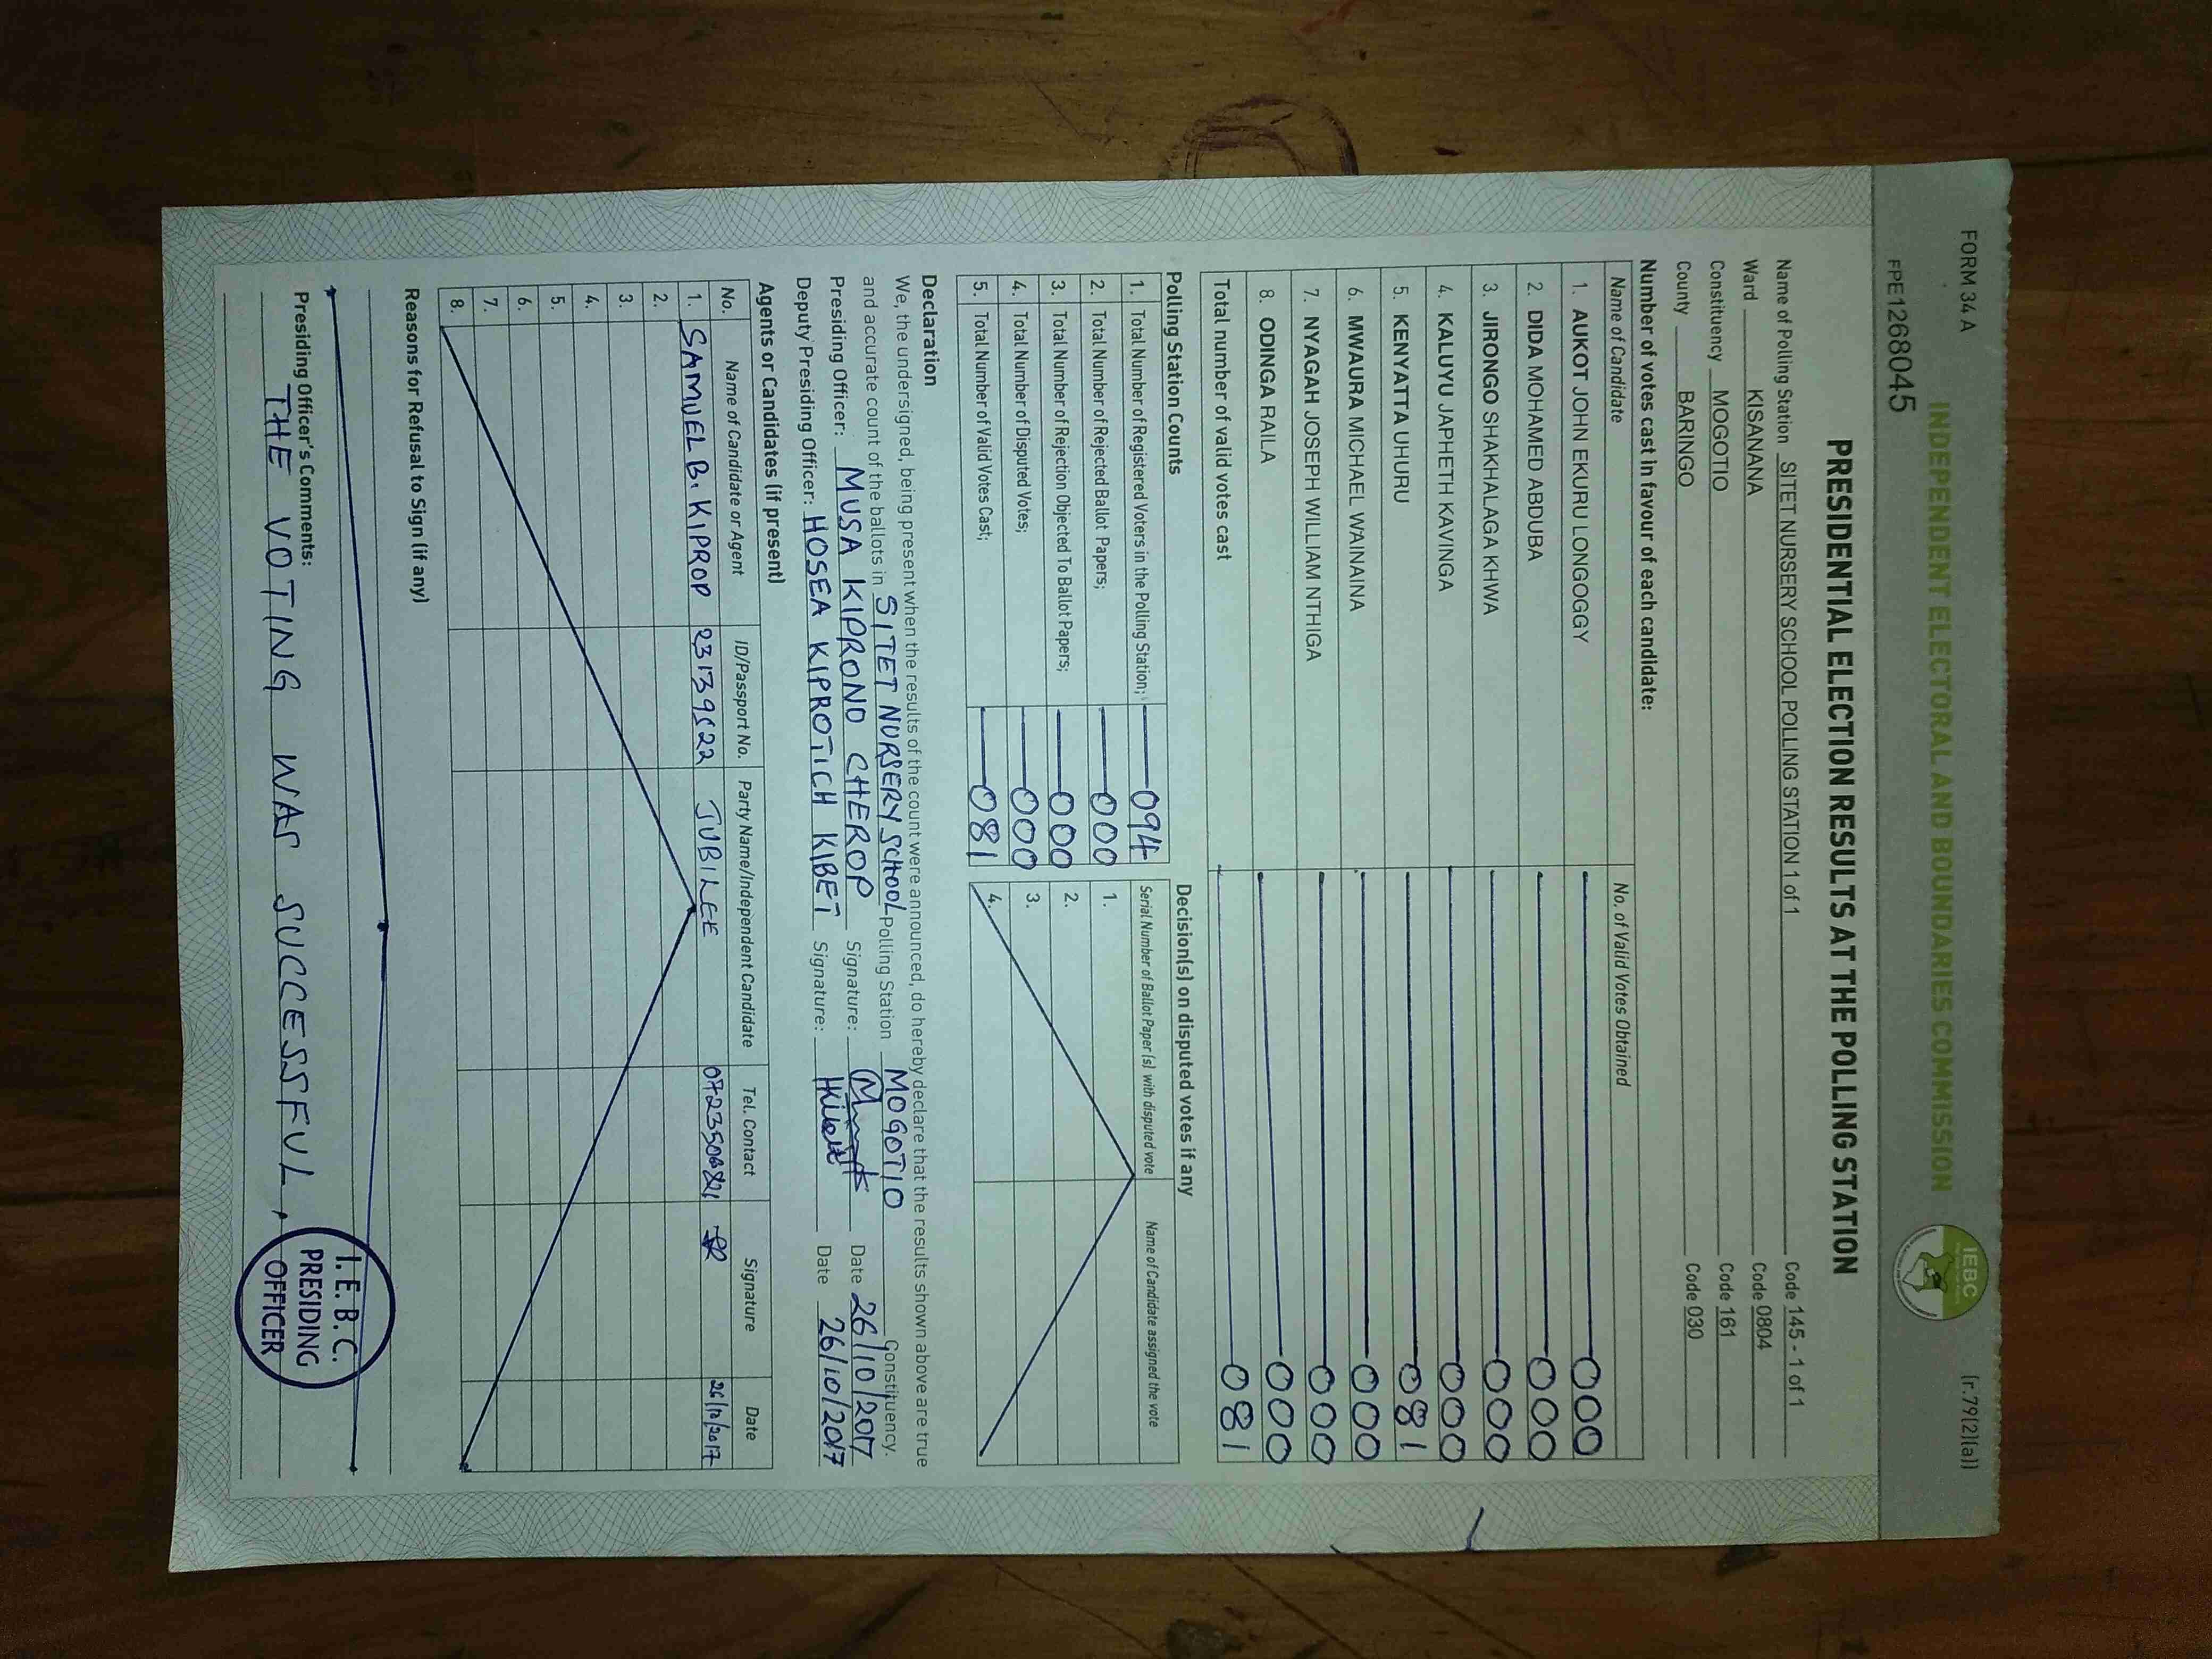 FORM 34 A
(r.79(2)(a))
INDEPENDENT ELECTORAL AND BOUNDARIES COMMISSION
IEBC
FPE1268045
PRESIDENTIAL ELECTION RESULTS AT THE POLLING STATION
Name of Polling Station SITET NURSERY SCHOOL POLLING STATION 1 of 1 Code 145 - 1 of 1
Ward KISANANA Code 0804
Constituency MOGOTIO Code 161
County BARINGO Code 030
Number of votes cast in favour of each candidate:
Name of Candidate No. of Valid Votes Obtained
1. AUKOT JOHN EKURU LONGOGGY 000
2. DIDA MOHAMED ABDUBA 000
3. JIRONGO SHAKHALAGA KHWA 000
4. KALUYU JAPHETH KAVINGA 000
5. KENYATTA UHURU 081
6. MWAURA MICHAEL WAINAINA 000
7. NYAGAH JOSEPH WILLIAM NTHIGA 000
8. ODINGA RAILA 000
Total number of valid votes cast 081
Polling Station Counts
1. Total Number of Registered Voters in the Polling Station; 094
2. Total Number of Rejected Ballot Papers; 000
3. Total Number of Rejection Objected To Ballot Papers; 000
4. Total Number of Disputed Votes; 000
5. Total Number of Valid Votes Cast; 081
Decision(s) on disputed votes if any
Serial Number of Ballot Paper (s) with disputed vote Name of Candidate assigned the vote
1.
2.
3.
4.
Declaration
We, the undersigned, being present when the results of the count were announced, do hereby declare that the results shown above are true
and accurate count of the ballots in SITET NURSERY SCHOOL Polling Station MOGOTIO Constituency.
Presiding Officer: MUSA KIPRONO CHEROP Signature: Date 26/10/2017
Deputy Presiding Officer: HOSEA KIPROTICH KIBET Signature: HKibet Date 26/10/2017
Agents or Candidates (if present)
No. Name of Candidate or Agent ID/Passport No. Party Name/Independent Candidate Tel. Contact Signature Date
1. SAMUEL B. KIPROP JUBILEE 26/10/2017
2.
3.
4.
5.
6.
7.
8.
Reasons for Refusal to Sign (if any)
Presiding Officer's Comments:
THE VOTING WAS SUCCESSFUL.
I.E.B.C.
PRESIDING
OFFICER